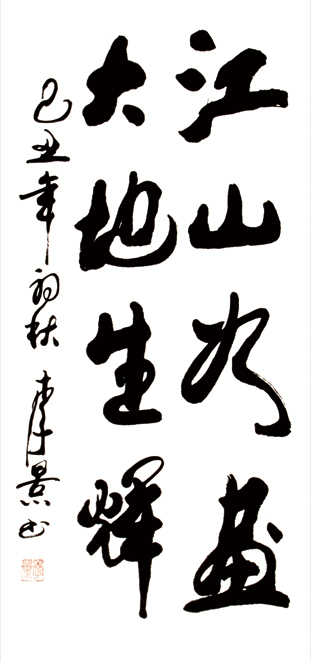 江山如畫
大地生輝
己丑年初秋 李景书